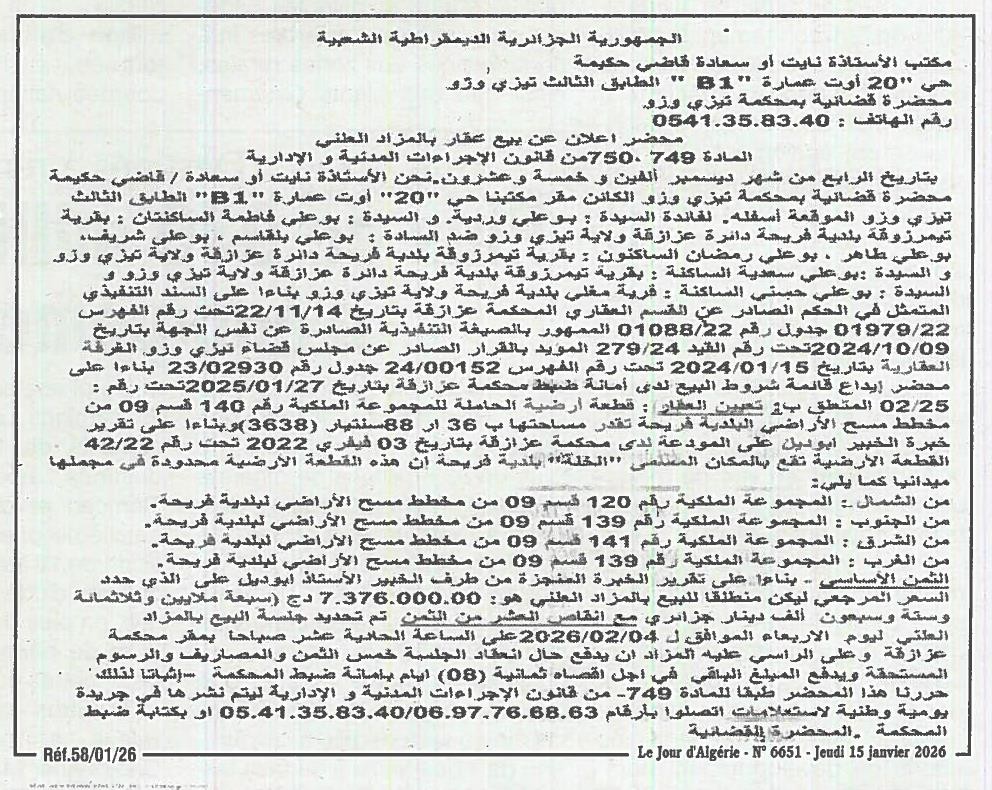 الجمهورية الجزائرية الديمقراطية الشعبية
مكتب الأستاذة نايت أو سعادة قاضي حكيمة
حي "20 أوت عمارة "B1 " الطابق الثالث تيزي وزو
محضرة قضائية بمحكمة تيزي وزو
رقم الهاتف : 0541.35.83.40
محضر اعلان عن بيع عقار بالمزاد العلني
المادة 749 ،750من قانون الإجراءات المدنية و الإدارية
بتاريخ الرابع من شهر ديسمبر ألفين و خمسة وعشرون.نحن الأستاذة نايت أو سعادة / قاضي حكيمة
محضرة قضائية بمحكمة تيزي وزو الكائن مقر مكتبنا حي "20" أوت عمارة "B1" الطابق الثالث
تيزي وزو الموقعة أسفله. لفائدة السيدة : بوعلي وردية. و السيدة : بوعلي فاطمة الساكنتان : بقرية
تيمرزوقة بلدية فريحة دائرة عزازقة ولاية تيزي وزو ضد السادة : بوعلي بلقاسم ، بوعلي شريف،
بوعلي طاهر ، بوعلي رمضان الساكنون : بقرية تيمرزوقة بلدية فريحة دائرة عزازقة ولاية تيزي وزو
و السيدة :بوعلي سعدية الساكنة : بقرية تيمرزوقة بلدية فريحة دائرة عزازقة ولاية تيزي وزو و
السيدة : بوعلي حسني الساكنة : قرية مغلي بلدية فريحة ولاية تيزي وزو بناءا على السند التنفيذي
المتمثل في الحكم الصادر عن القسم العقاري المحكمة عزازقة بتاريخ 22/11/14تحت رقم الفهرس
01979/22 جدول رقم 01088/22 الممهور بالصيغة التنفيذية الصادرة عن نفس الجهة بتاريخ
2024/10/09تحت رقم القيد 279/24 المؤيد بالقرار الصادر عن مجلس قضاء تيزي وزو الغرفة
العقارية بتاريخ 2024/01/15 تحت رقم الفهرس 24/00152 جدول رقم 23/02930 بناءا على
محضر إيداع قائمة شروط البيع لدى أمانة ضبط محكمة عزازقة بتاريخ 2025/01/27تحت رقم :
02/25 المتعلق ب: تعيين العقار : قطعة أرضية الحاملة للمجموعة الملكية رقم 140 قسم 09 من
مخطط مسح الأراضي البلدية فريحة تقدر مساحتها ب 36 ار 88سنتيار (3638)وبناءا على تقرير
خبرة الخبير ابوديل على المودعة لدى محكمة عزازقة بتاريخ 03 فيفري 2022 تحت رقم 42/22
القطعة الأرضية تقع بالمكان المسمى "الخلة" بلدية فريحة ان هذه القطعة الأرضية محدودة في مجملها
ميدانيا كما يلي:
من الشمال : المجموعة الملكية رقم 120 قسم 09 من مخطط مسح الأراضي لبلدية فريحة.
من الجنوب : المجموعة الملكية رقم 139 قسم 09 من مخطط مسح الأراضي لبلدية فريحة.
من الشرق : المجموعة الملكية رقم 141 قسم 09 من مخطط مسح الأراضي لبلدية فريحة.
من الغرب : المجموعة الملكية رقم 139 قسم 09 من مخطط مسح الأراضي لبلدية فريحة.
الثمن الأساسي - بناءا على تقرير الخبرة المنجزة من طرف الخبير الأستاذ ابوديل على الذي حدد
السعر المرجعي ليكن منطلقا للبيع بالمزاد العلني هو: 7.376.000.00 دج (سبعة ملايين وثلاثمائة
وستة وسبعون ألف دينار جزائري مع انقاص العشر من الثمن تم تحديد جلسة البيع بالمزاد
العلني ليوم الاربعاء الموافق ل 2026/02/04على الساعة الحادية عشر صباحا بمقر محكمة
عزازقة وعلى الراسي عليه المزاد ان يدفع حال انعقاد الجلسة خمس الثمن والمصاريف والرسوم
المستحقة ويدفع المبلغ الباقي في اجل اقصاه ثمانية (08) ايام بامانة ضبط المحكمة –إثباتا لذلك
حررنا هذا المحضر طبقا للمادة 749- من قانون الإجراءات المدنية و الإدارية ليتم نشرها في جريدة
يومية وطنية لاستعلامات اتصلوا بارقام 05.41.35.83.40/06.97.76.68.63 او بكتابة ضبط
المحكمة .المحضرة القضائية
Réf.58/01/26
Le Jour d'Algérie - N° 6651 - Jeudi 15 janvier 2026